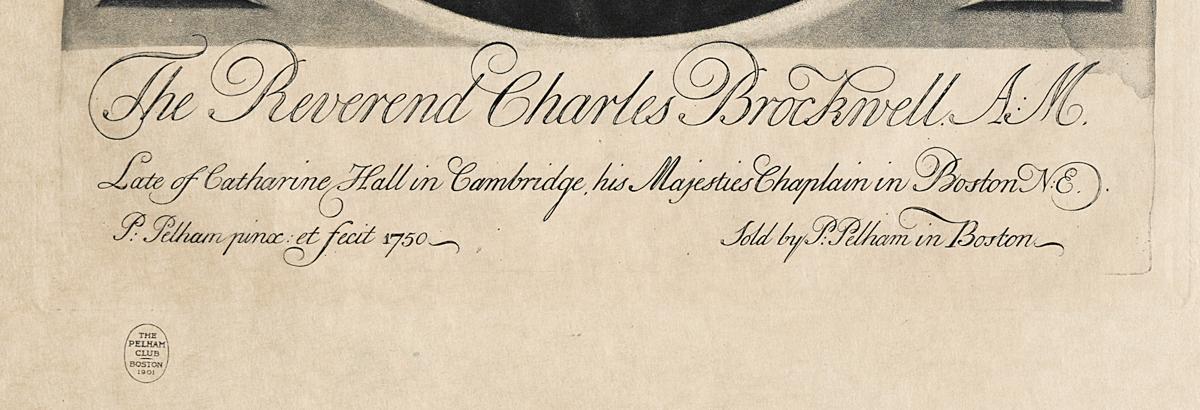 The Reverend Charles Brockwell. A:M.
Late of Catharine Hall in Cambridge, his Majesties Chaplain in Boston N:E.
P: Pelham pinx: et fecit 1750
Sold by P: Pelham in Boston
THE
PELHAM
CLUB
BOSTON
1901